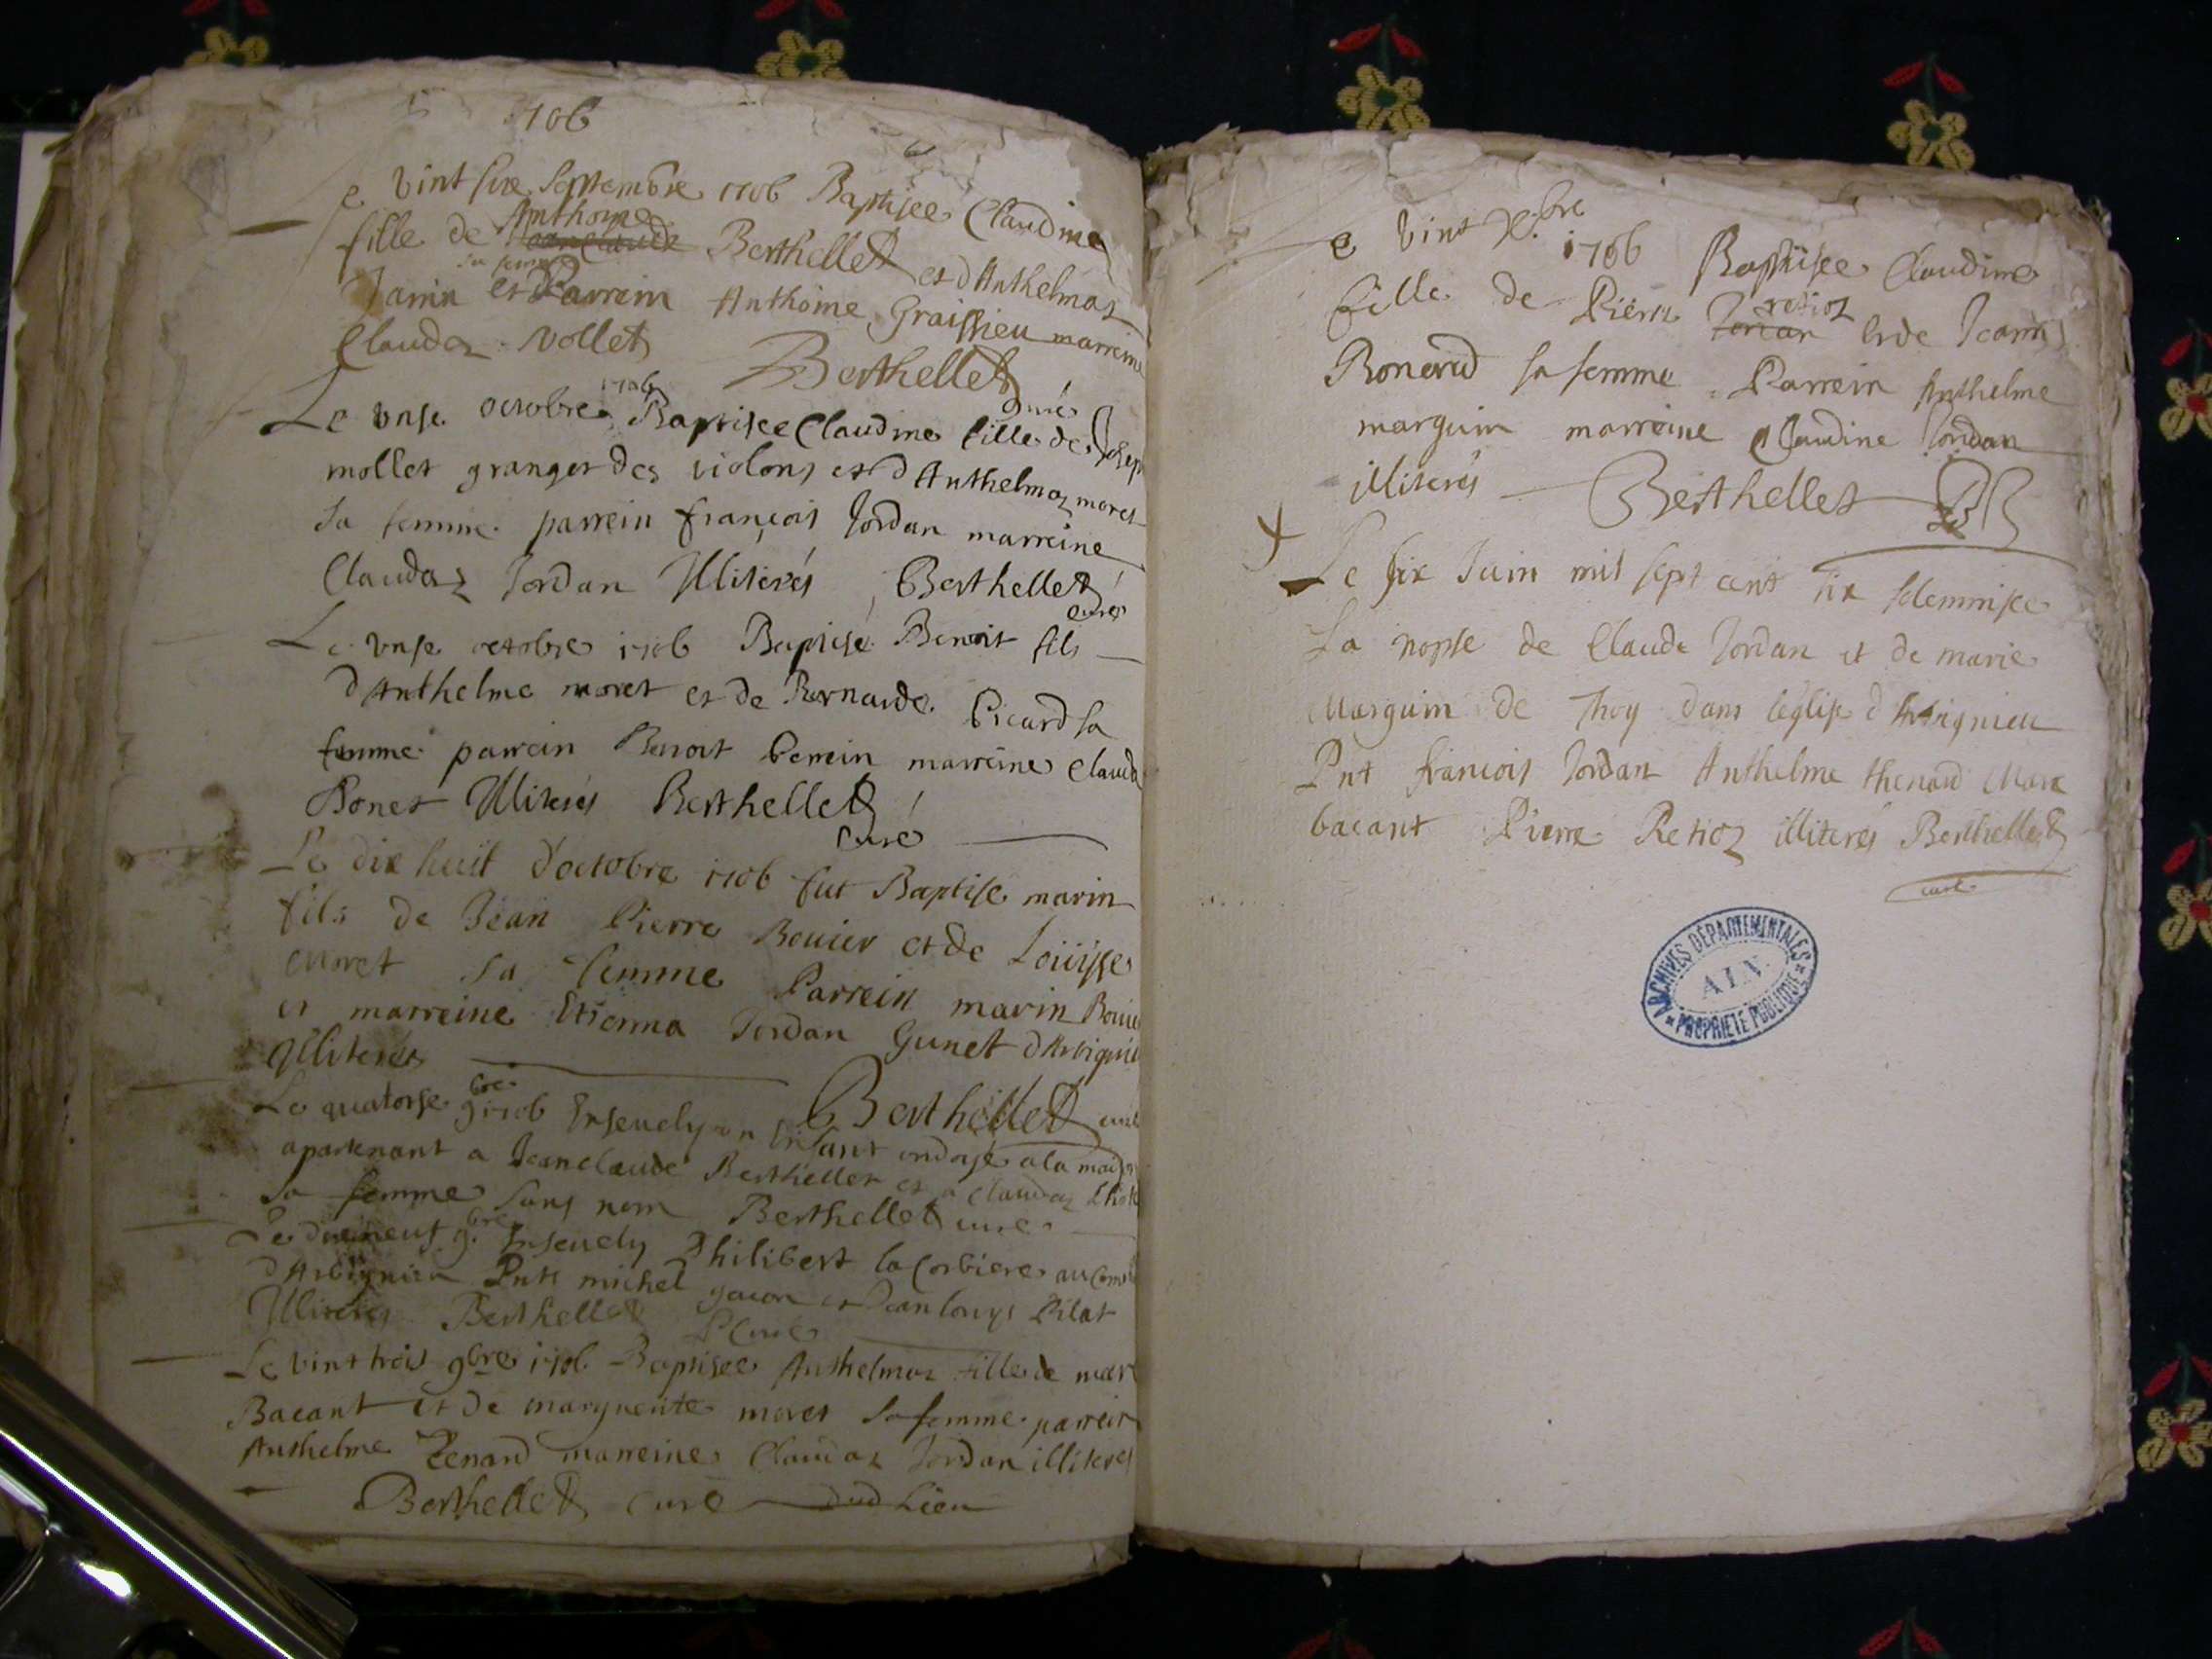 1706
e vint sixe septembre 1706 Baptisee Claudine
fille de Anthoine Berthellet et d'Anthelmaz
Janin sa femme et Parrein Anthoine Graissieu marreine
Claudaz Vollet Berthellet
curé
Le unse octobre 1706 Baptisee Claudine fille de Josep
mollet granger des violons et d'Anthelmaz moret
sa femme parrein françois Jordan marreine
Claudaz Jordan Illiterés Berthellet
curé
Le unse octobre 1706 Baptisé Benoit fils
d'Anthelme moret et de Bernarde Picard sa
femme parrein Benoit Perrein marreine Claud
Bonet Illiterés Berthellet
curé
Le dix huit d'octobre 1706 fut Baptisé marin
fils de Jean Pierre Bouier et de Loüisse
curret sa femme Parrein marin Bouie
et marreine Etienna Jordan Gunet d'Arbignie
Illiterés
Berthellet curé
Le quatorse 9bre 1706 Ensevely un Enfant ondoyé a la maison
apartenant a Jeanclaude Berthellet et a Claudaz
sa femme sans nom Berthellet curé
Le dixneuf 9bre Ensevely Philibert la Corbiere au
d'Arbignieu Pnts michel gacon et Jean louys Pilat
Illiterés Berthellet
Curé
Le vint trois 9bre 1706 Baptisee Anthelmaz fille de mar
Bacant et de marguerite moret sa femme parrein
Anthelme Tenard marreine Claudaz Jordan illiterés
Berthellet curé dud Lieu
e vint X.bre 1706 Baptisee Claudine
fille de Pierre Jordan retioz et de Jeanne
Bonerd sa femme Parrein Anthelme
marguin marreine Claudine Jordan
illiterés Berthellet
Le six Juin mil sept cent six solemnisee
La nopse de Claude Jordan et de marie
Marguin de Thoy dans l'eglise d'Arbignieu
Pnt francois Jordan Anthelme thenard Marc
bacant Pierre Retioz illiterés Berthellet
curé
ARCHIVES DÉPARTEMENTALES
AIN
PROPRIÉTÉ PUBLIQUE